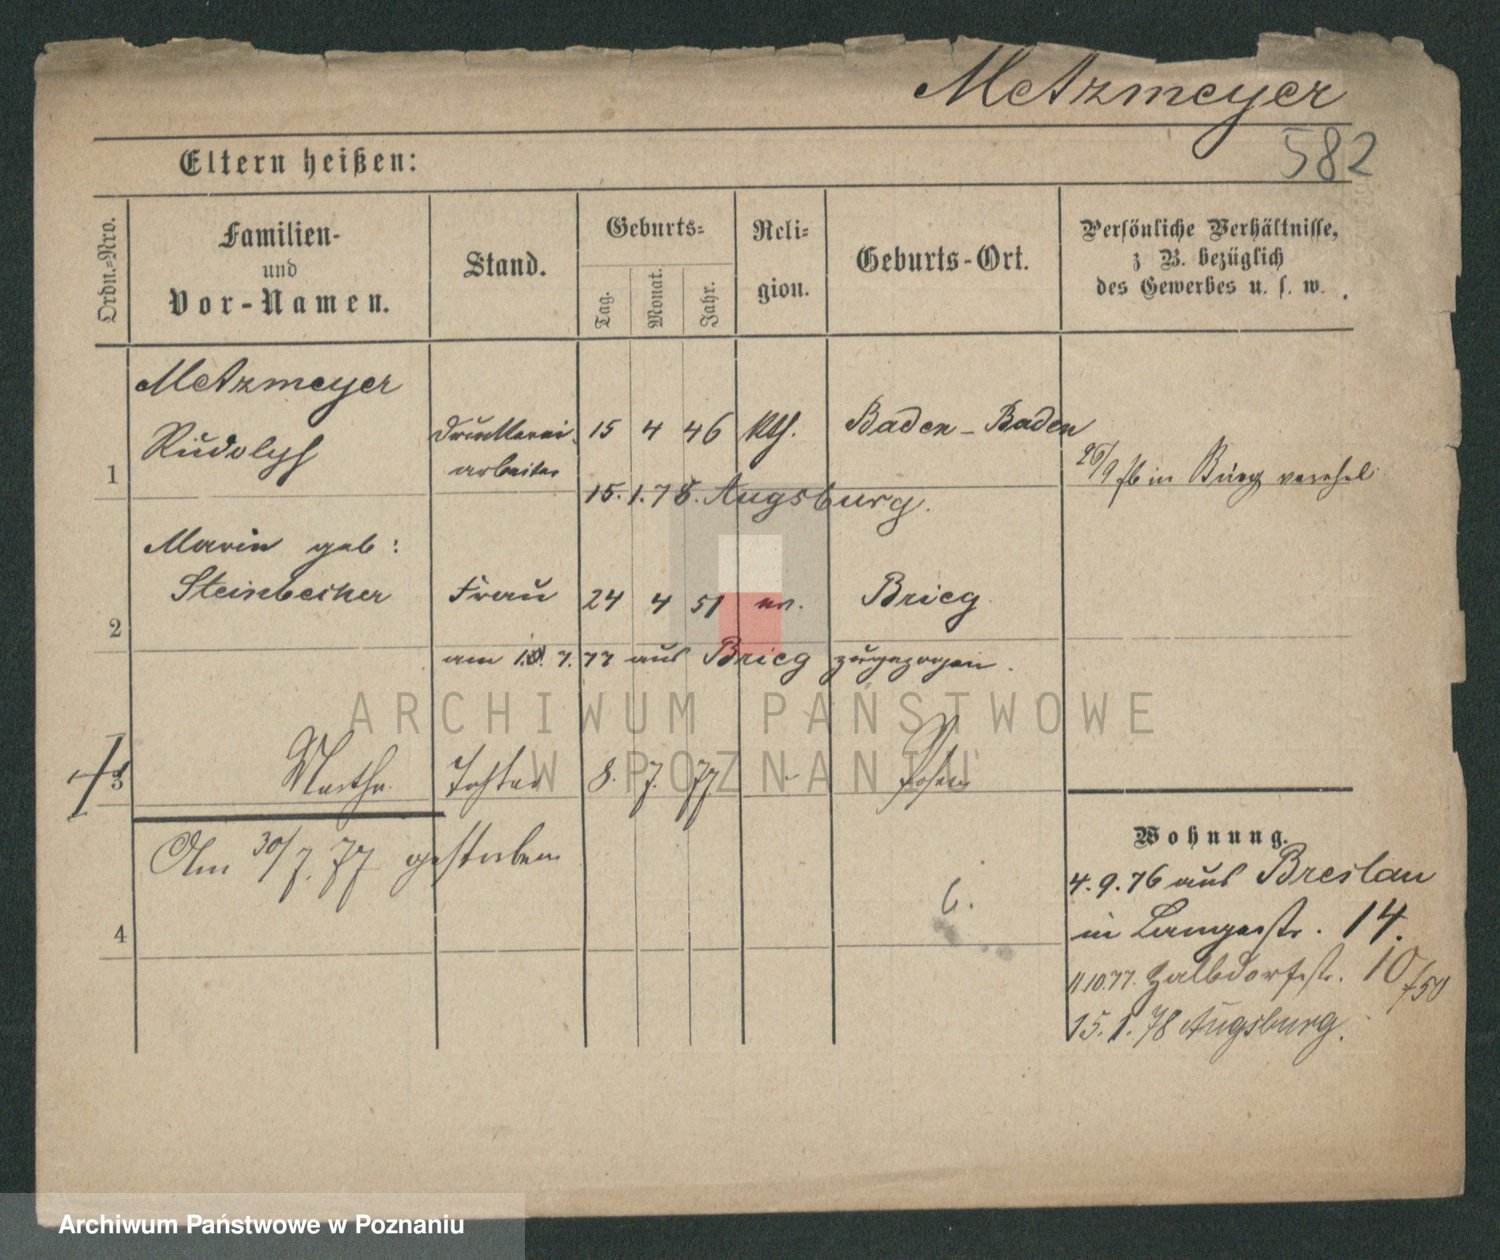 Metzmeyer
582
Eltern heißen:
Ordn.-Nro.
Familien-
und
Vor-Namen.
Stand.
Geburts-
Tag.
Monat.
Jahr.
Reli-
gion.
Geburts-Ort.
Persönliche Verhältnisse,
z B. bezüglich
des Gewerbes u. s. w.
1
Metzmeyer
Rudolph
Druckerei
arbeiter
15 4 46 kth. Baden-Baden
26/9 in Brieg verehel.
15. 1. 78. Augsburg.
2
Marie geb:
Steinbecher
Frau
24 4 51 ev. Brieg
am 10. 7. 77 aus Brieg zugezogen.
3
Martha Tochter 8. 7. 77 Posen
Am 30/7. 77 gestorben
4
6.
Wohnung.
4. 9. 76 aus Breslau
in Langestr. 14.
11 10. 77. Halbdorfstr. 10/50
15. 1. 78 Augsburg.
ARCHIWUM PAŃSTWOWE
W POZNANIU
Archiwum Państwowe w Poznaniu